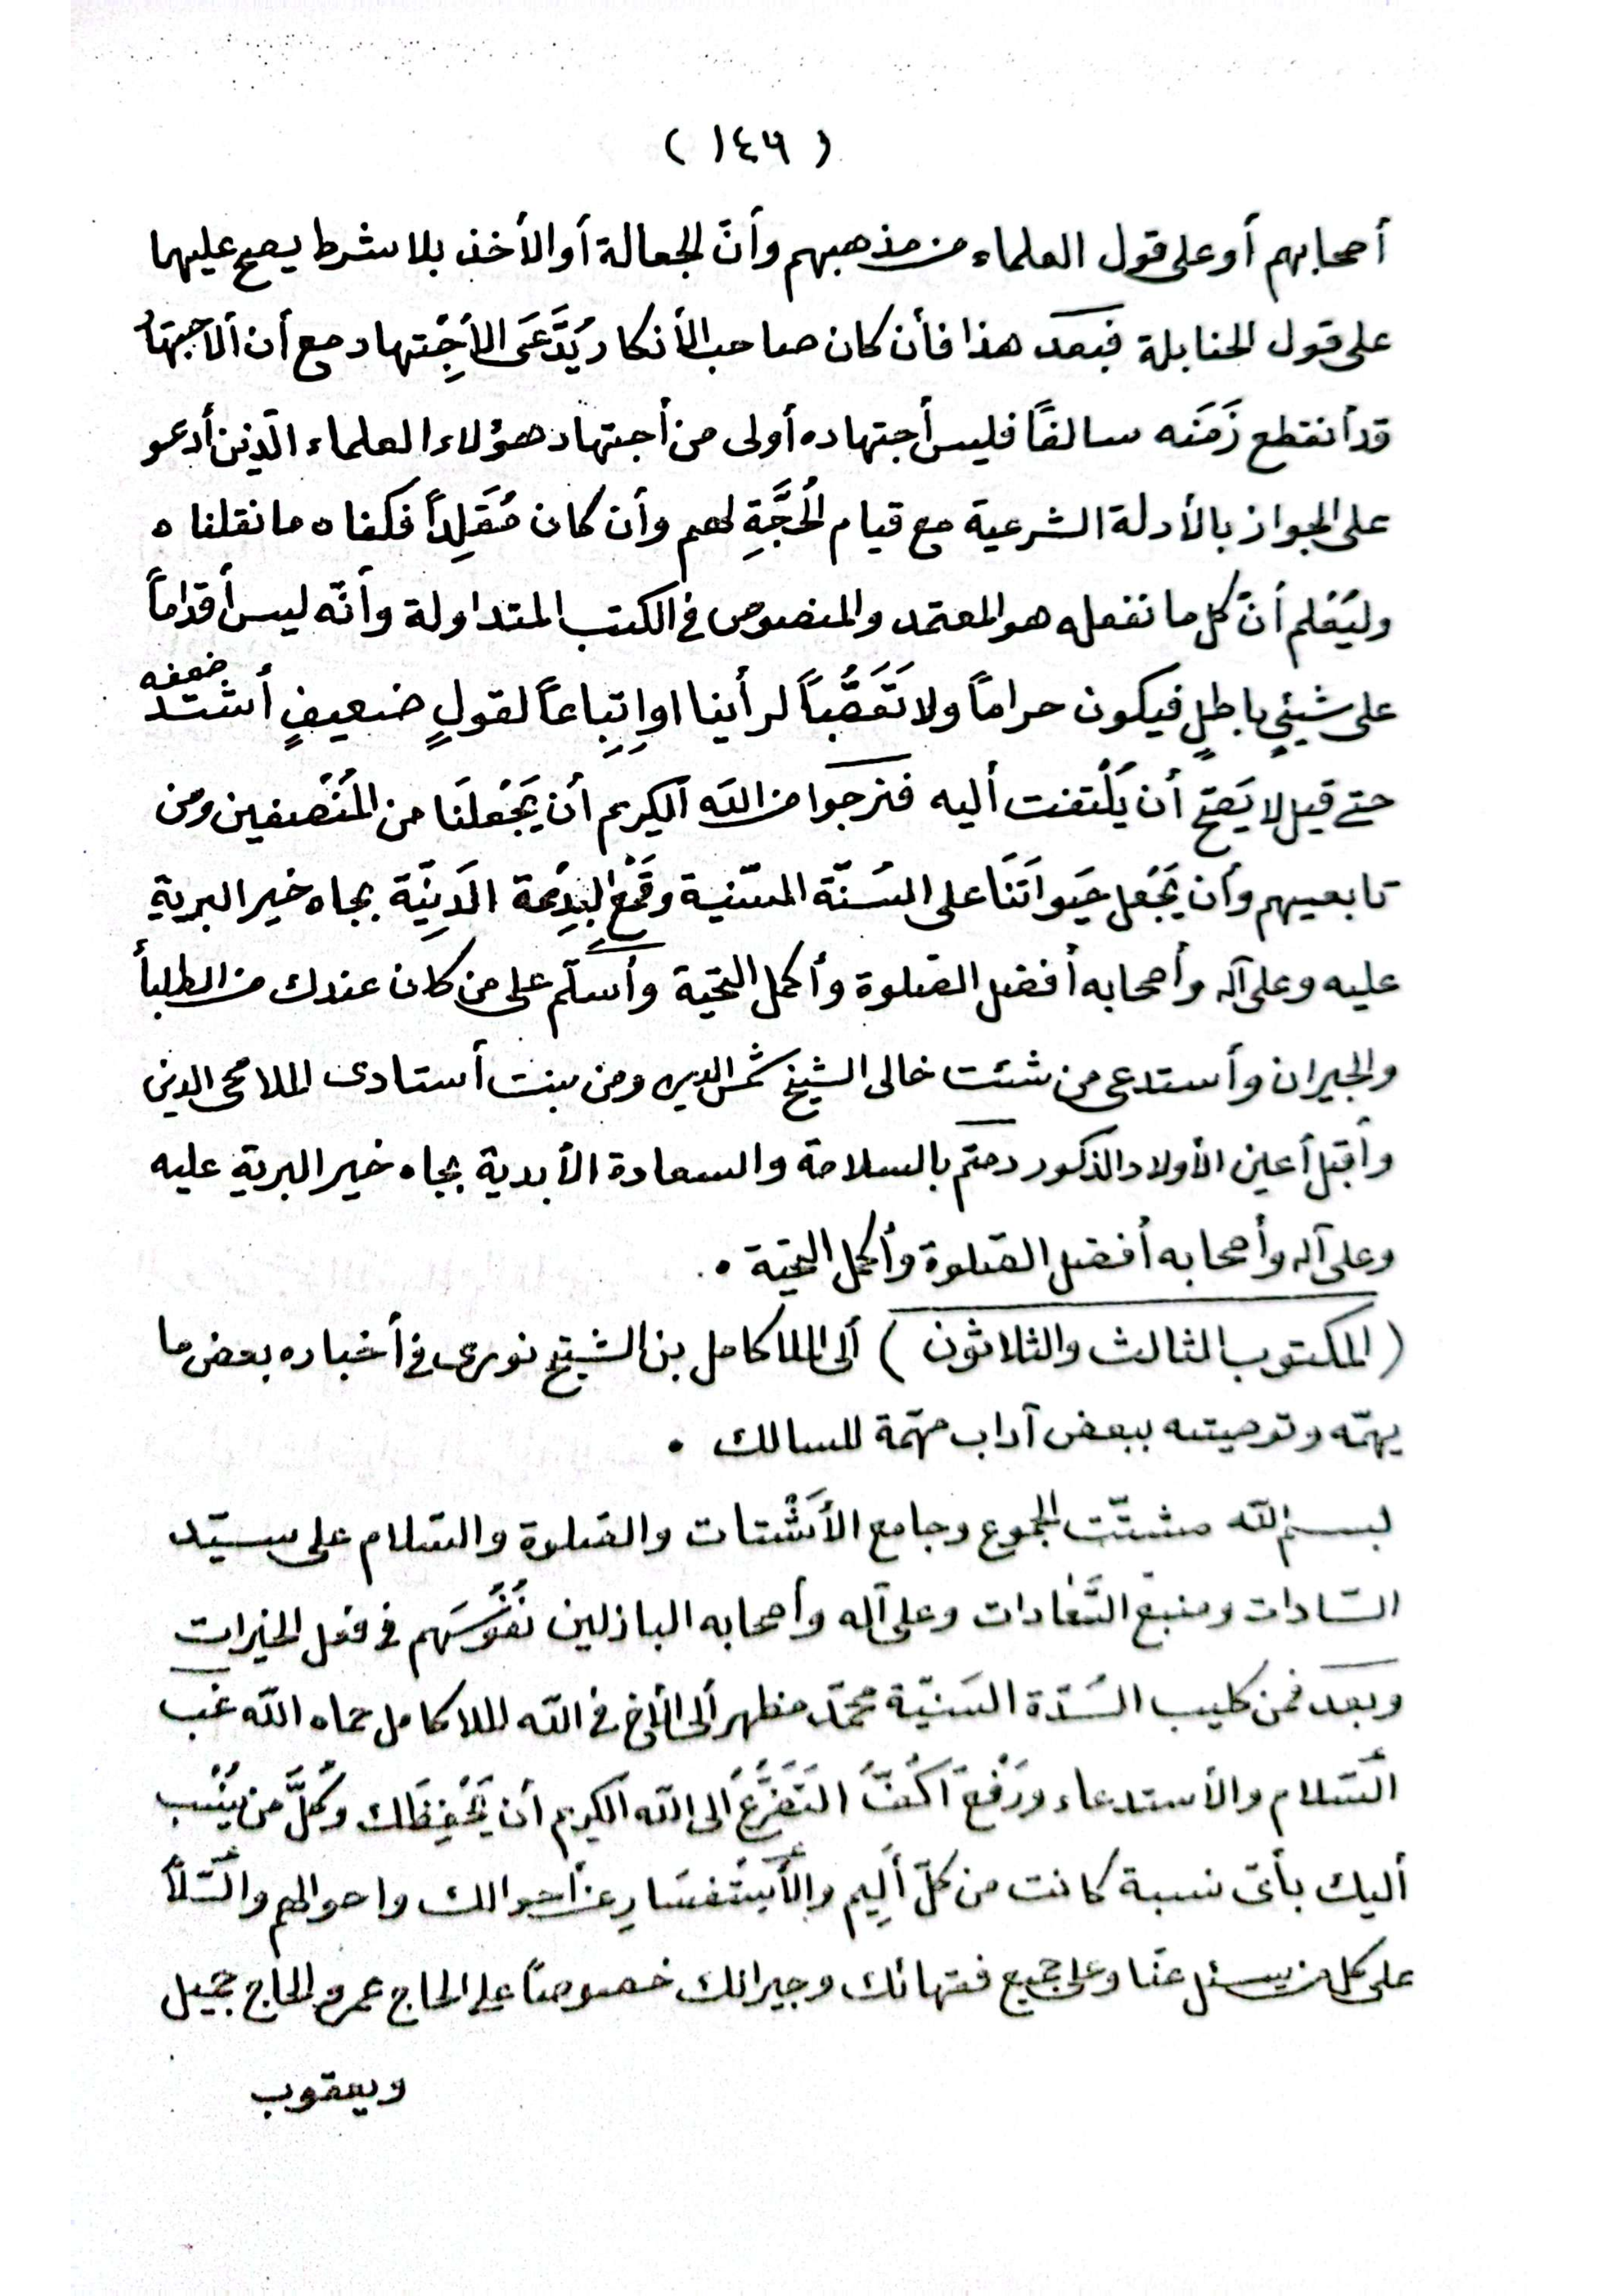 ( ١٤٦ )
أصحابهم أو على قول العلماء من مذهبهم وأنّ الجعالة أو الأخذ بلا شرط يصح عليهما
على قول الحنابلة فبعد هذا فأن كان صاحب الأنكار يَدَّعَى الأجْتِهاد مع أن الأجتهاد
قد أنقطع زَمَنَه سالفاً فليس أجتهاده أولى من أجتهاد هؤلاء العلماء الّذين أدعو
على الجواز بالأدلة الشرعية مع قيام الْحُجَّةِ لهم وأن كان مُقَلِداً فكفاه ما نقلناه
وليُعْلم أنّ كل ما نفعله هو المعتمد والمنصوص فى الكتب المتداولة وأنّه ليس أقداماً
على شيئٍ باطلٍ فيكون حراماً ولا تَعَصُّباً لرأينا او اِتِباعاً لقولٍ ضعيفٍ أشتد ضعفه
حتى قيل لا يَصحّ أن يُلْتفت أليه فنرجوا من الله الكريم أن يَجْعلَنَا من المُنْصفين ومن
تابعيهم وأن يَجْعل حَيواتَنَا على السُنّة السّنية وقَمْعِ البِدْعة الدَنِيّة بجاه خير البرية
عليه وعلى آله وأصحابه أفضل الصّلوة وأكمل التّحيّة وأسلّم على من كان عندك من الطلبأ
والجيران وأستدعى من شئت خالى الشيخ شمس الدين ومن بنت أستادى الملا محى الدين
وأقبل أعين الأولاد الذكور دمتم بالسلامة والسعادة الأبدية بجاه خير البرية عليه
وعلى آله وأصحابه أفضل الصّلوة وأكمل التحيّة .
( المكتوب الثالث والثلاثون ) ألى الملا كامل بن الشيخ نورى فى أخباره بعض ما
يهمّه وتوصيته ببعض آداب مهمّة للسالك .
بسم الله مشتّت الجموع وجامع الأَشْتات والصّلوة والسّلام على سيّد
السّادات ومنبع السَّعادات وعلى آله وأصحابه الباذلين نُفُوسَهم فى فعل الخيرات
وبعد فمن كليب السُدّة السَنيّة محمّد مظهر ألى الأخ فى الله الملا كامل حماه الله غب
السّلام والأستدعاء ورَفْعِ اَكُفِّ التَضَرُّعِ الى الله الكريم أن يَحْفِظَك وكُلَّ من يُنْسب
أليك بأىّ نسبة كانت من كلّ أَلِيم والأَسْتفسَارِ عن احوالك واحوالهم والسّلأ
على كل من يسئل عنّا وعلى جميع فقهائك وجيرانك خصوصاً على الحاج عمر والحاج جميل
ويعقوب